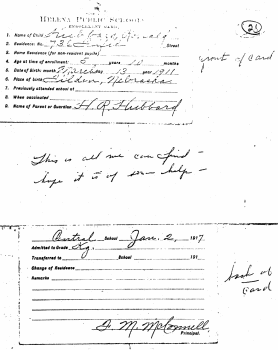 HELENA PUBLIC SCHOOLS
ENROLLMENT CARD
1. Name of Child Hubbard,
2. Residence: No. 736 Street
3. Home Residence (for non-resident pupils)
4. Age at time of enrollment: 5 years 10 months
5. Date of Birth: month March 13 year 1911
6. Place of Birth Tilden, Nebraska
7. Previously attended school at
8. When vaccinated
9. Name of Parent or Guardian H.R. Hubbard
front of card
This is all we can find -
hope it is of some help -
Central School Jan. 2, 1917
Admitted to Grade Kg.
Transferred to School 191
Change of Residence
Remarks
back of
card
G. M. McConnell
Principal.